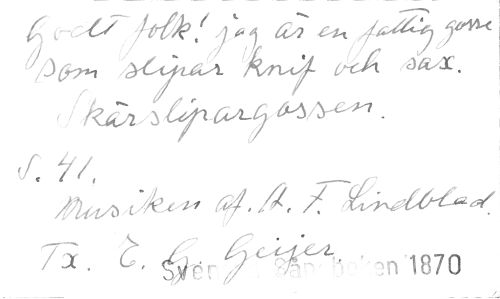 Godt folk! jag är en fattig gosse
som slipar knif och sax.
Skärslipargossen.
S. 41.
Musiken af. A. F. Lindblad.
Tx. E. G. Geijer.
Sven Sångboken 1870